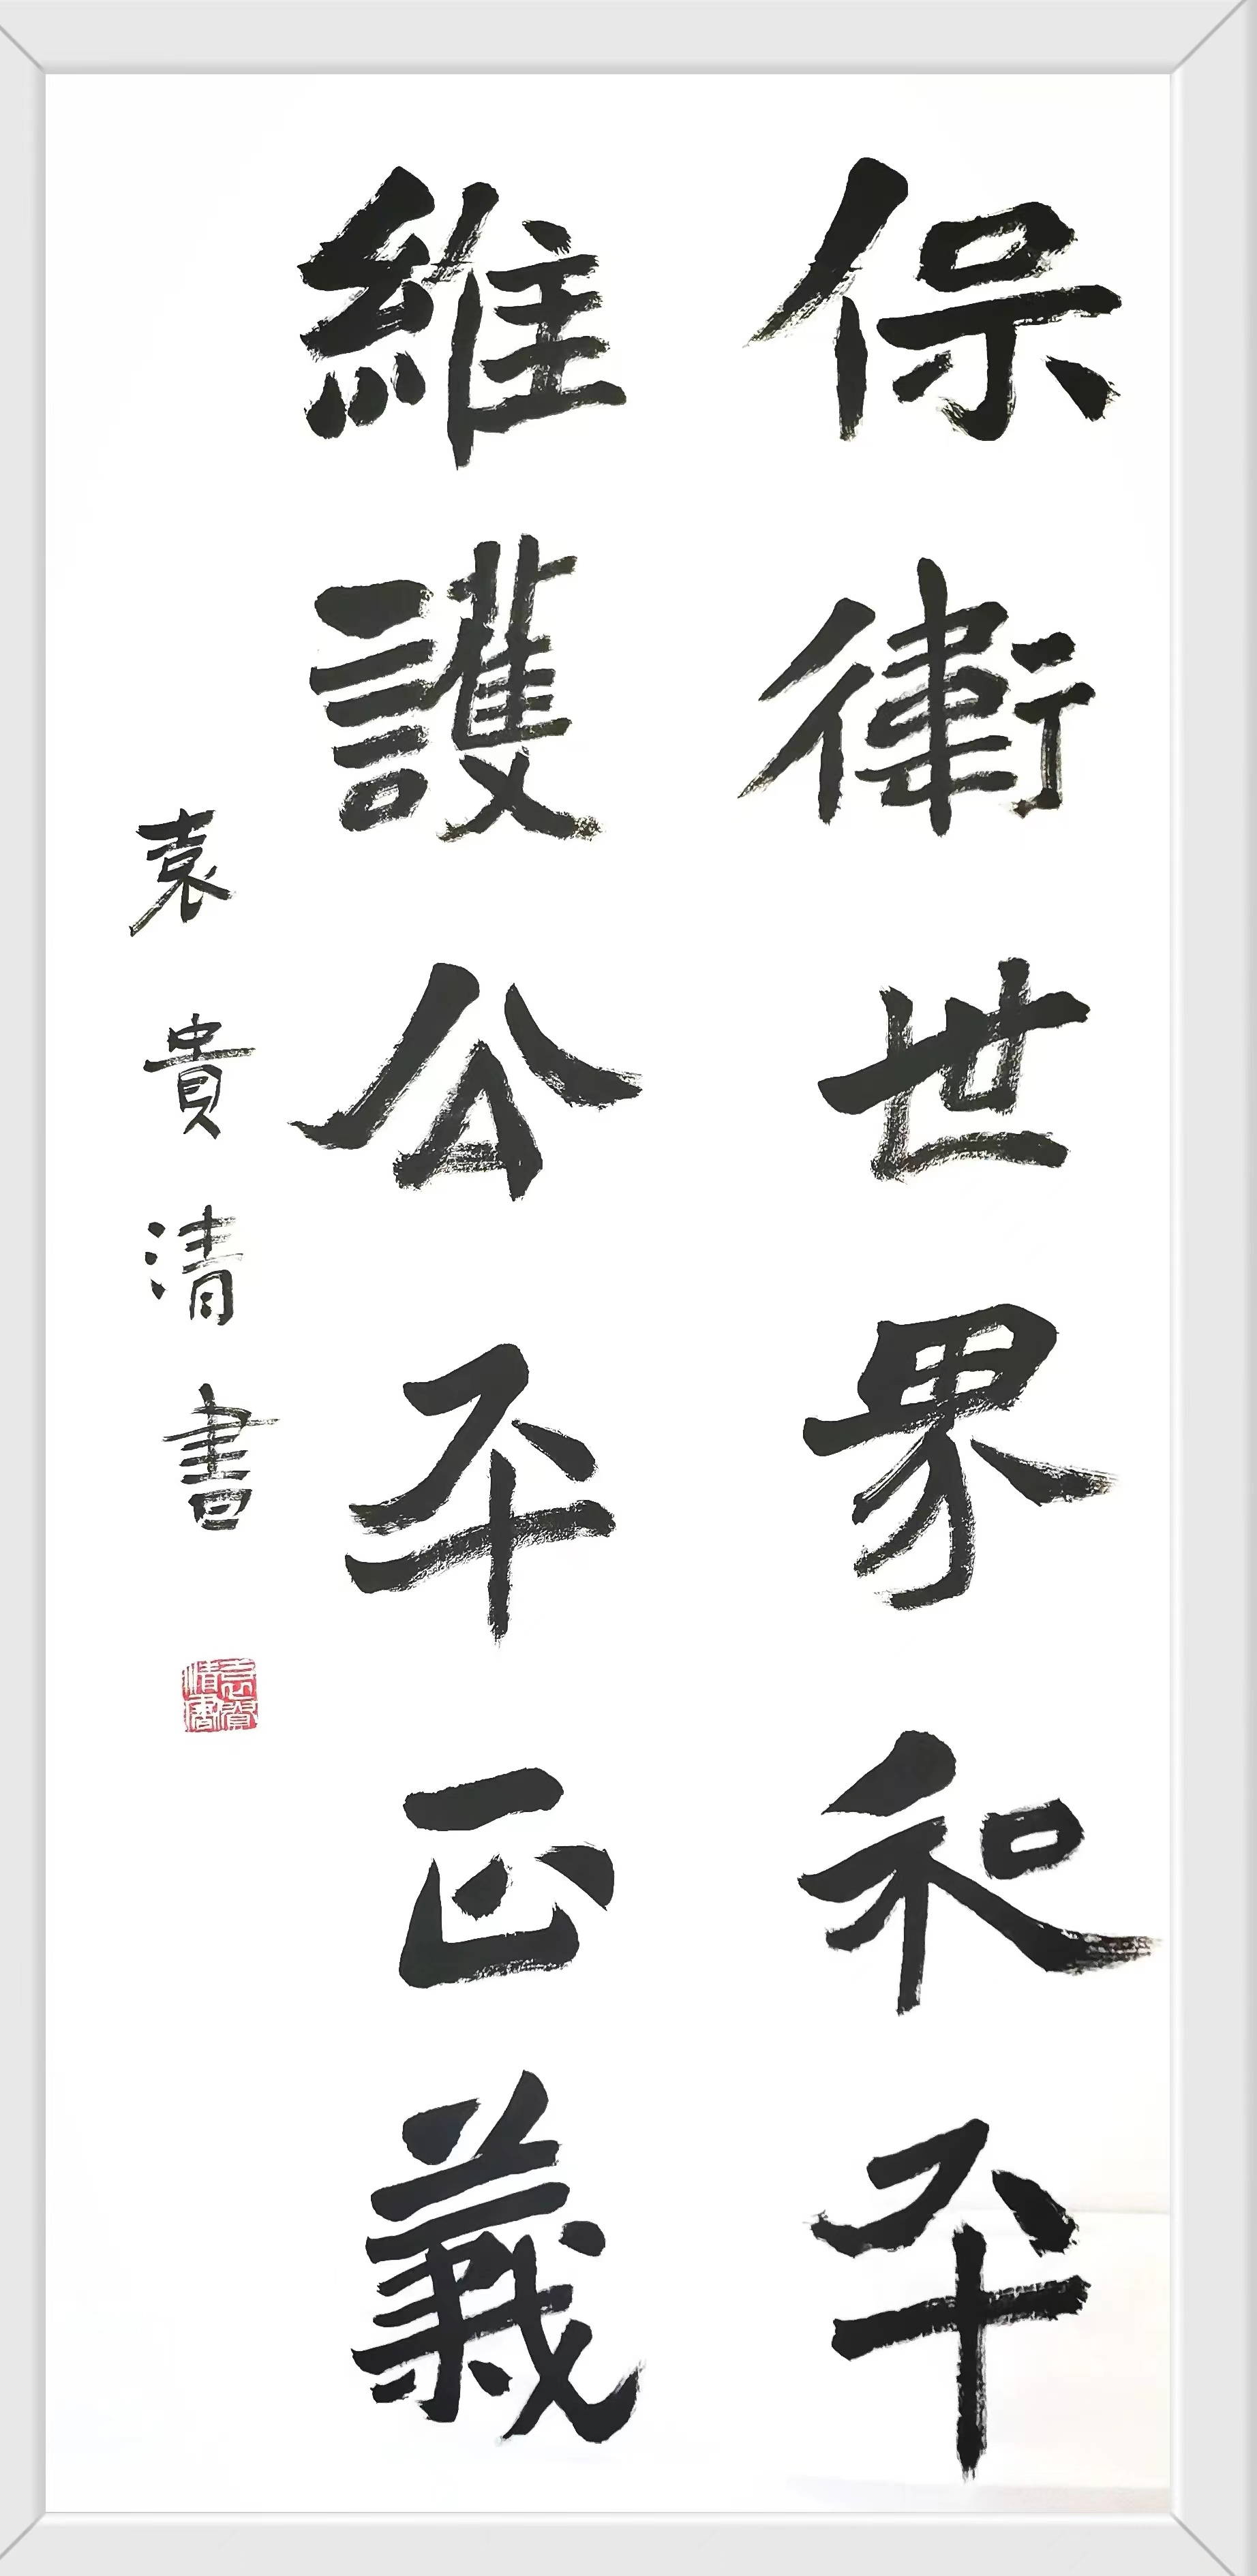 保衛世界和平
維護公平正義
袁貴清書